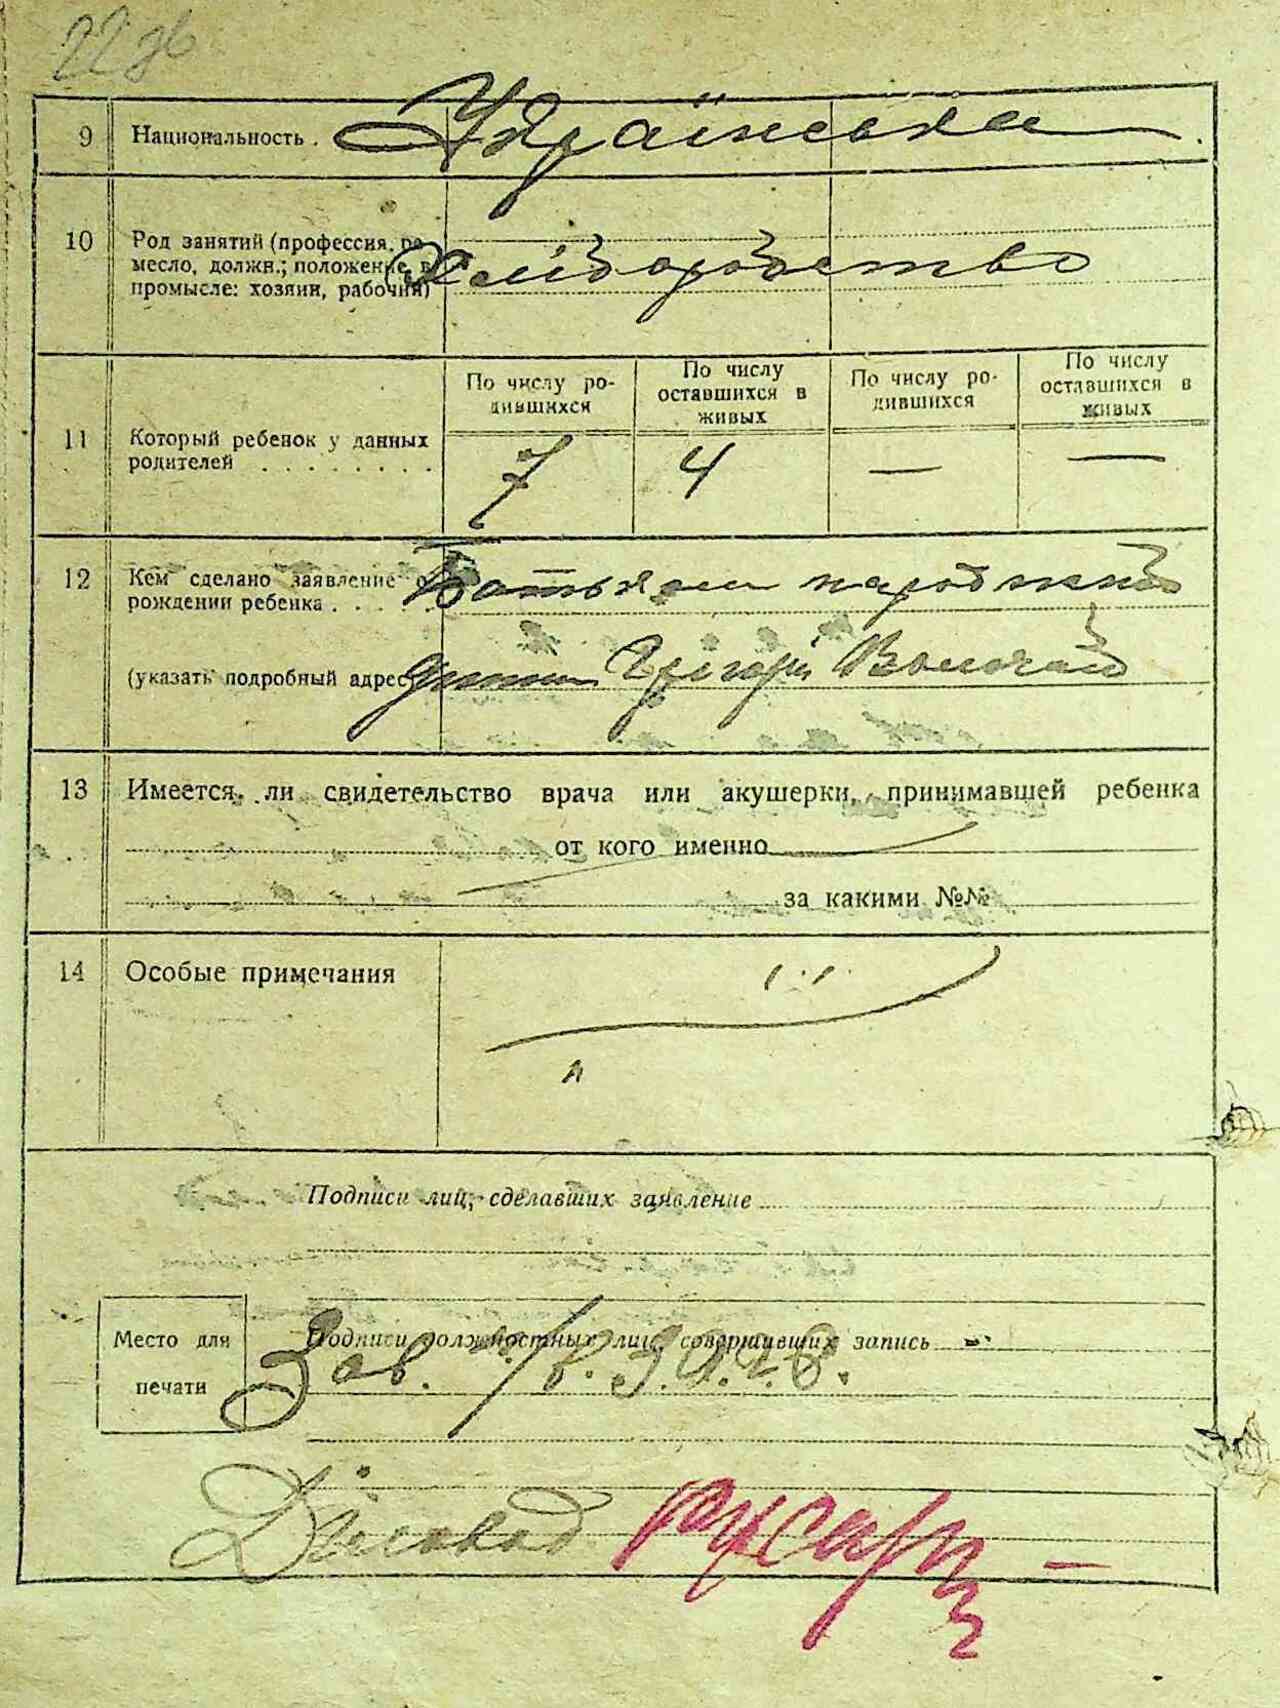 22 зв
9 Национальность . Українська
10 Род занятий (профессия, ре-
месло, должн.; положение в
промысле: хозяин, рабочий)
По числу ро-
дившихся
По числу
оставшихся в
живых
По числу ро-
дившихся
По числу
оставшихся в
живых
11 Который ребенок у данных
родителей . . . . . . . . 7 4 — —
12 Кем сделано заявление о Батьком народжен
рождении ребенка . . .
(указать подробный адрес) дитини Григорій
13 Имеется ли свидетельство врача или акушерки, принимавшей ребенка
от кого именно
за какими №№
14 Особые примечания
Подписи лиц, сделавших заявление
Место для
печати
Подписи должностных лиц, совершивших запись
Зав.
Діловод